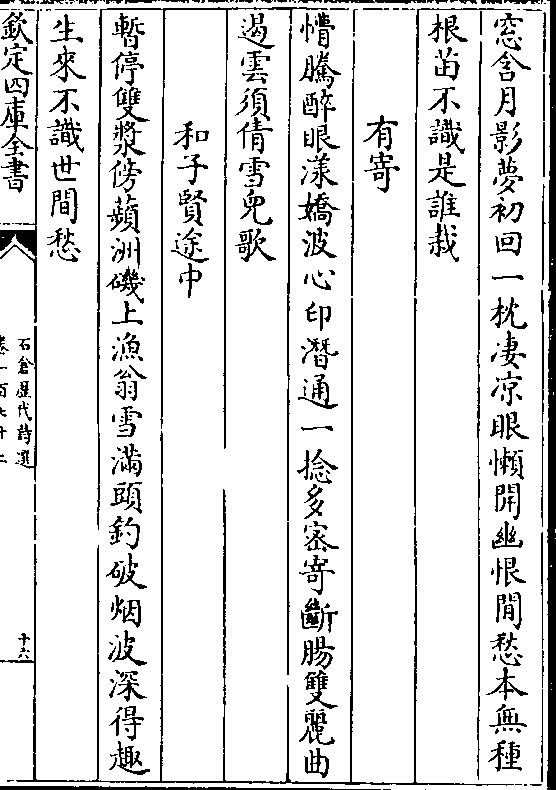 窓含月影夢初回一枕凄凉眼懶開幽恨閒愁本無種
根苗不識是誰栽
有寄
懵騰醉眼漾嬌波心印潛通一捻多密寄斷腸雙麗曲
遏雲須倩雪兒歌
和子賢途中
暫停雙漿傍蘋洲磯上漁翁雪滿頭釣破烟波深得趣
生來不識世間愁
欽定四庫全書
石倉歷代詩選
卷一百七十二
十六